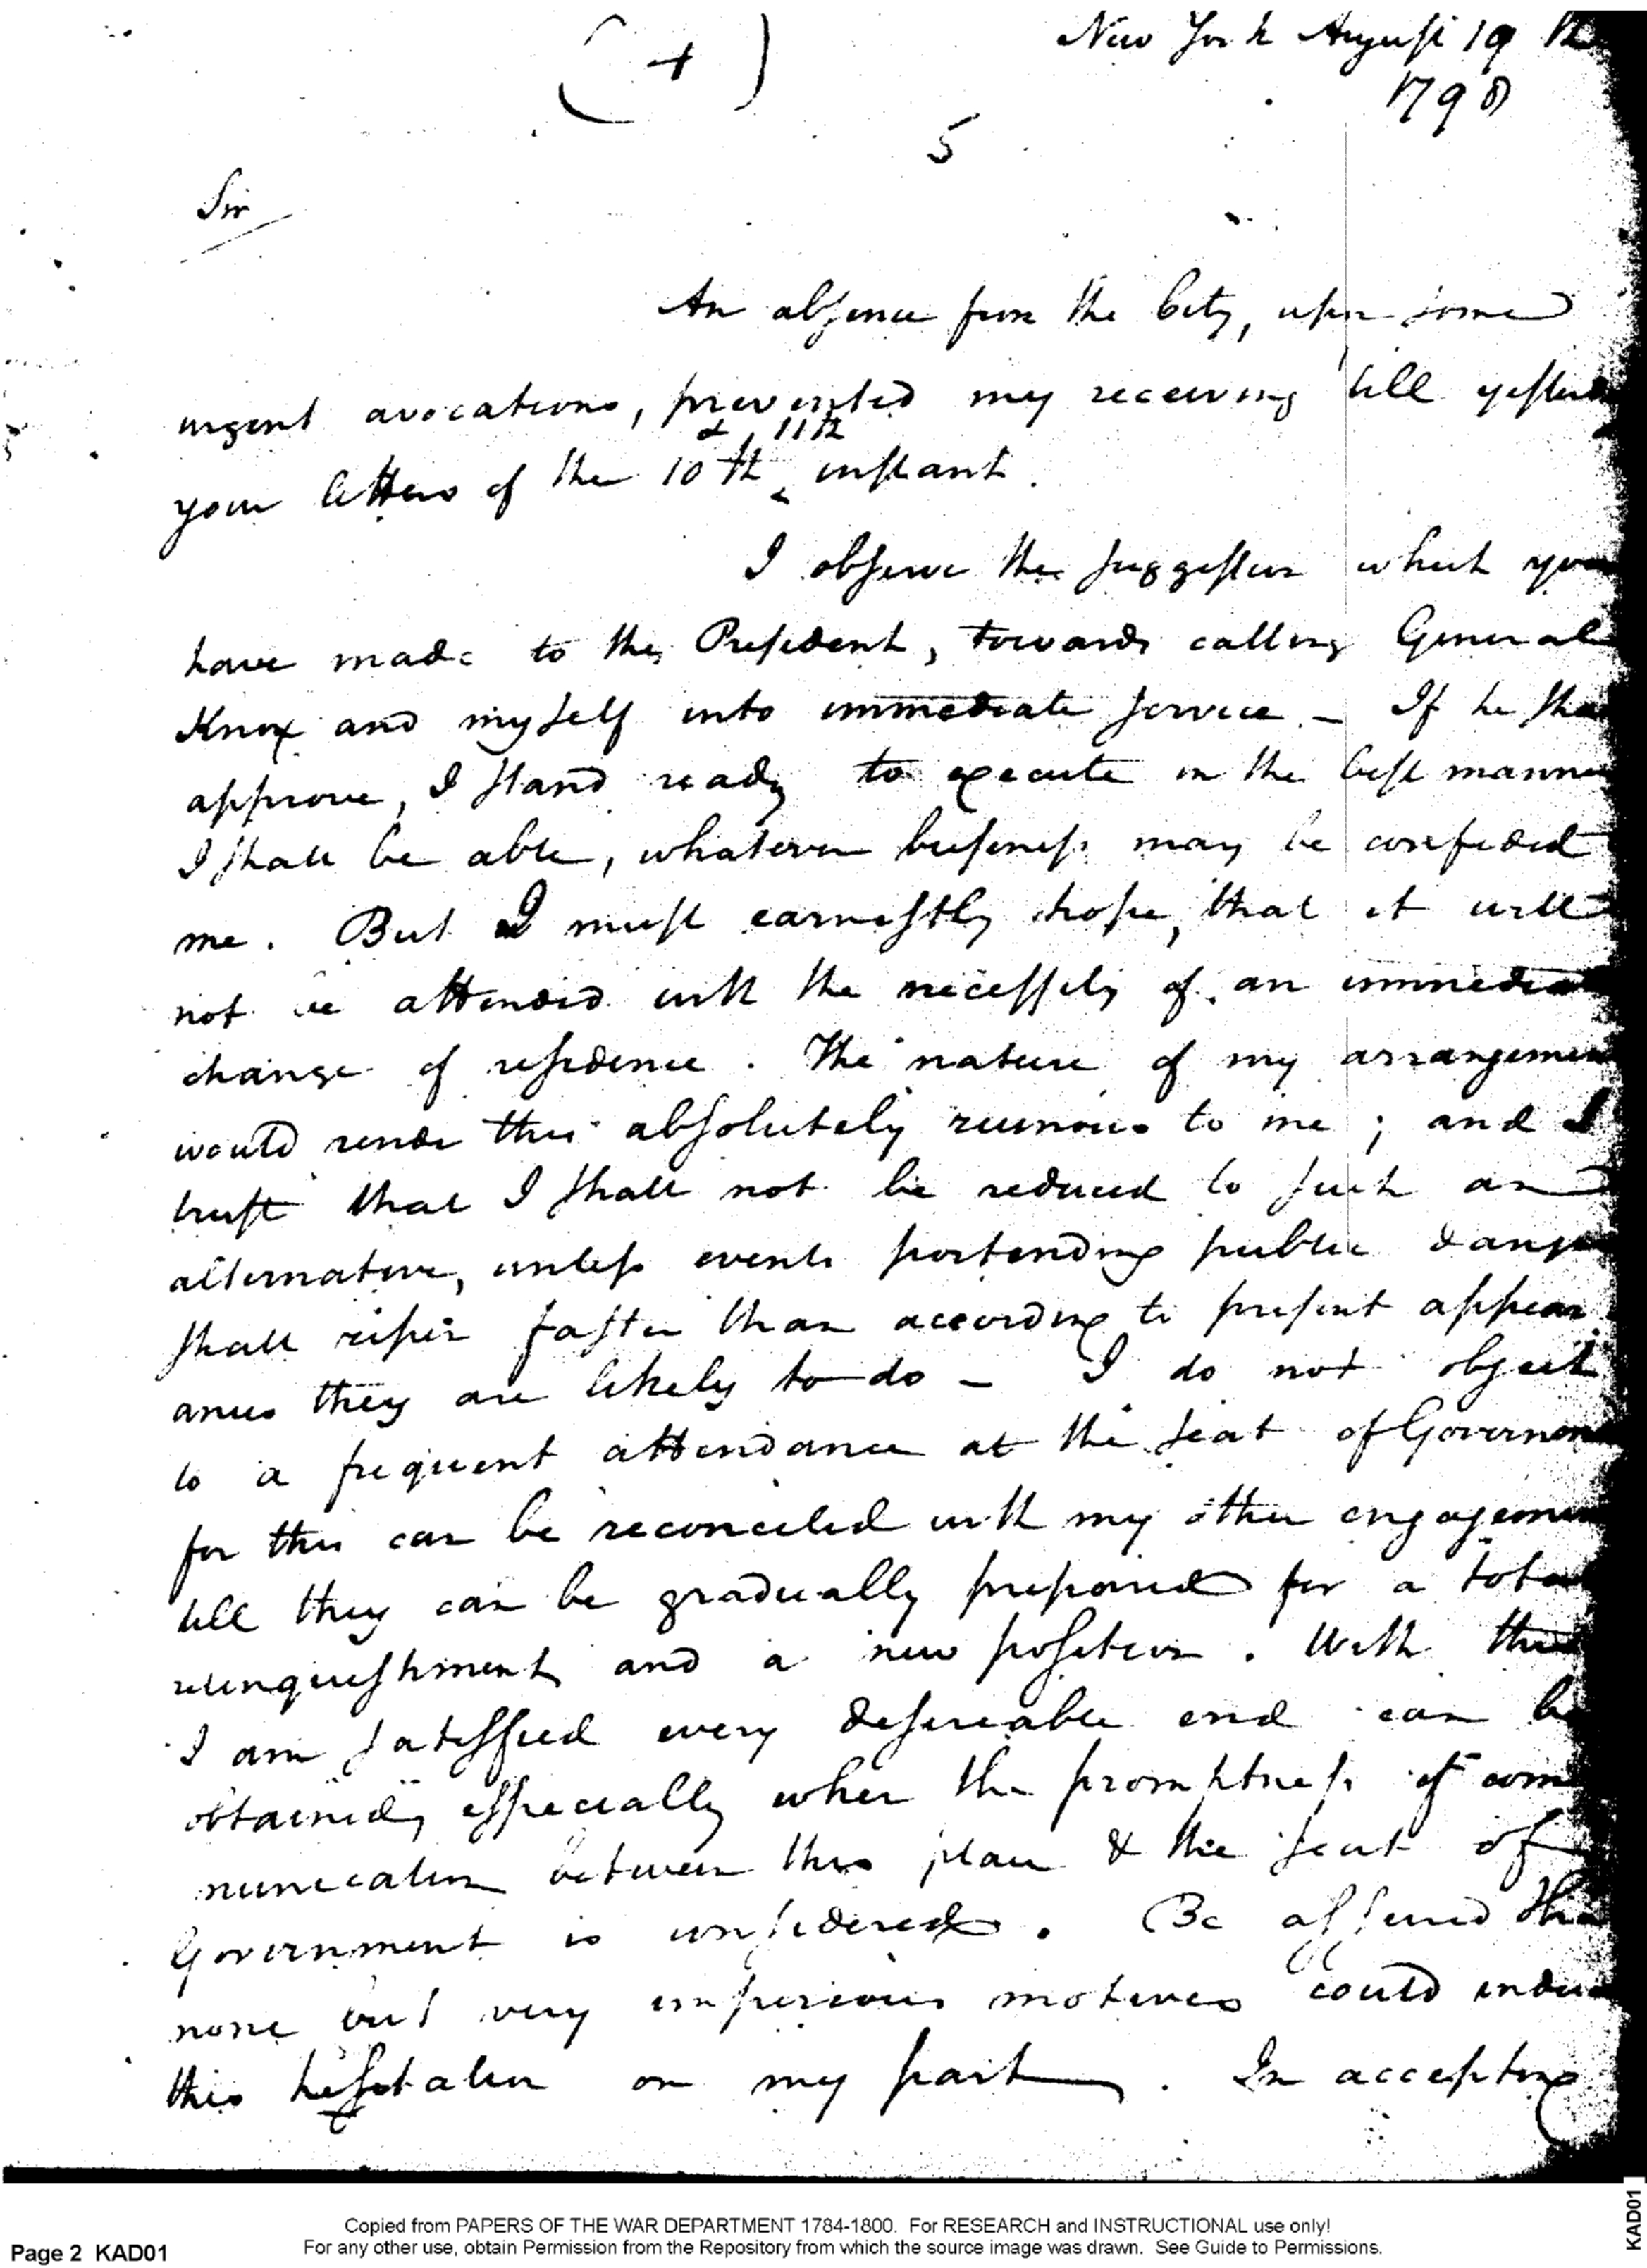 ( + )
New York August 19th
1798
5
Sir
An absence from the City, upon some
urgent avocations, prevented my receiving till yester
your letters of the 10th & 11th instant.
I observe the suggestion which you
have made to the President, towards calling General
Knox and myself into immediate service – If he sha
approve, I stand ready to execute in the best manner
I shall be able, whatever business may be confided
me. But I must earnestly hope, that it will
not be attended with the necessity of an immedia
change of residence. The nature of my arrangemen
would render this absolutely ruinous to me; and I
trust that I shall not be reduced to such an
alternative, unless events portending public dange
shall ripen faster than according to present appear
ances they are likely to do – I do not object
to a frequent attendance at the seat of Governmen
for this can be reconciled with my other engagemen
till they can be gradually prepared for a total
relinquishment and a new position. With this
I am satisfied every desireable end can be
obtained, especially when the promptness of com
munication between this place & the seat of
Government is considered. Be assured tha
none but very imperious motives could induc
this hesitation on my part. In accepting
Copied from PAPERS OF THE WAR DEPARTMENT 1784-1800. For RESEARCH and INSTRUCTIONAL use only!
Page 2 KAD01
For any other use, obtain Permission from the Repository from which the source image was drawn. See Guide to Permissions.
KAD01